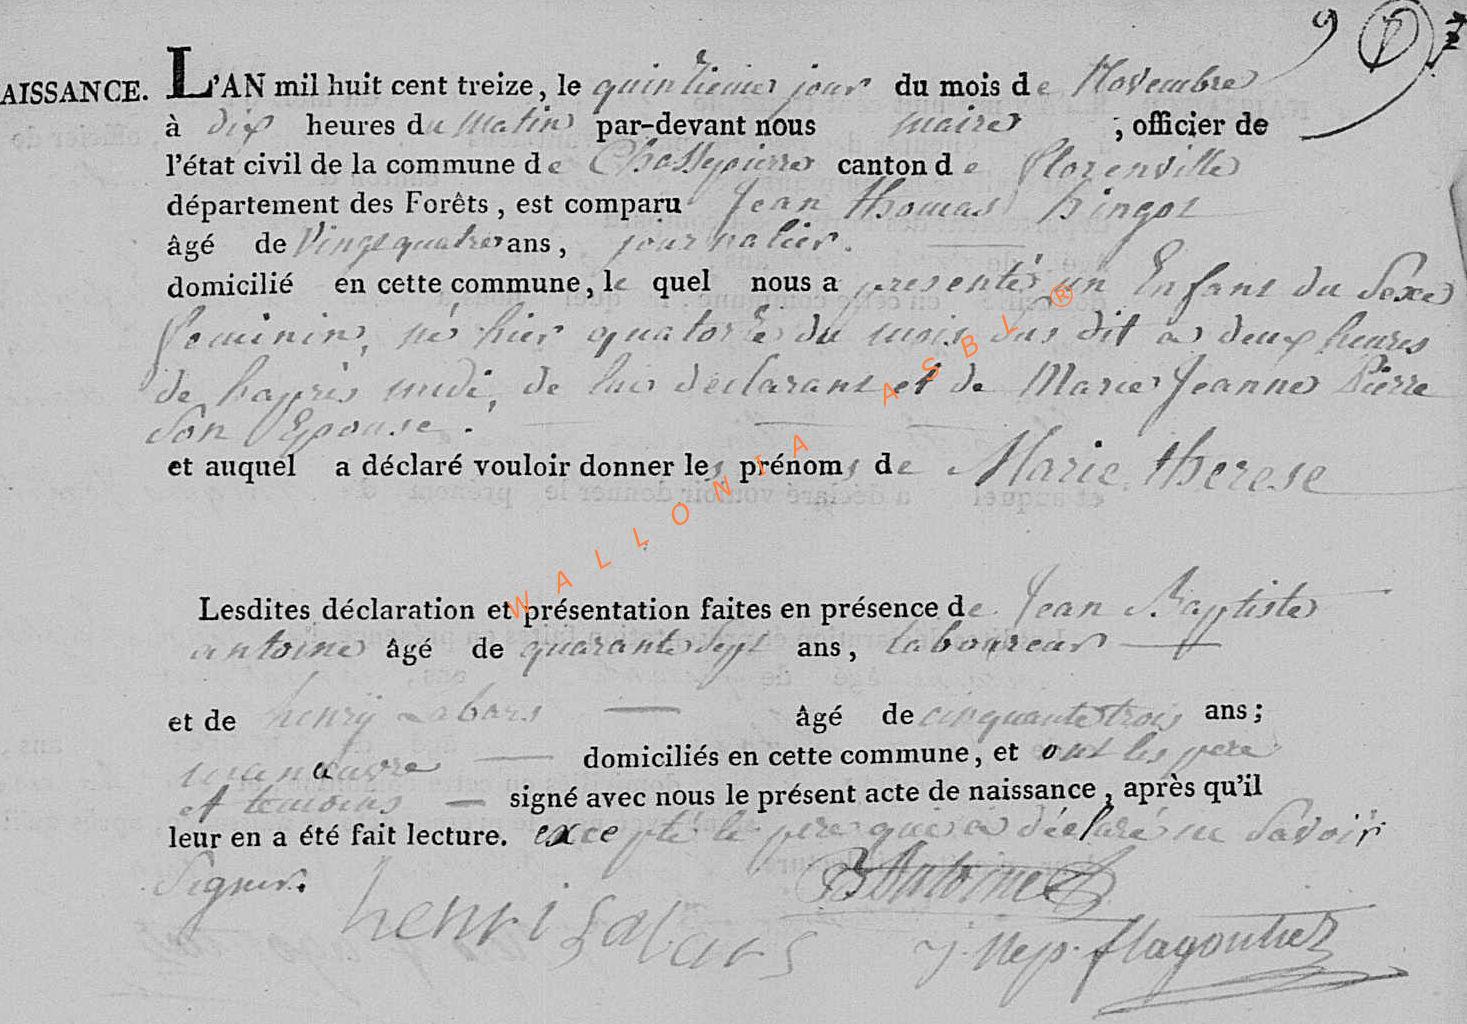 9
AISSANCE. L'AN mil huit cent treize, le quinzieme jour du mois de Novembre
à dix heures du Matin par-devant nous maire , officier de
l'état civil de la commune de Chassepierre canton de Florenville
département des Forêts, est comparu Jean thomas hingot
âgé de Vingt quatre ans, journalier.
domicilié en cette commune, le quel nous a presenté un Enfant du Sexe
feminin, né hier quatorze du mois sus dit a deux heures
de haprès midi, de lui declarant et de Marie Jeanne Pierre
Son Epouse.
et auquel a déclaré vouloir donner les prénoms de Marie therese
Lesdites déclaration et présentation faites en présence de Jean Baptiste
antoine âgé de quarante Sept ans, laboureur
et de henry Labars âgé de cinquante trois ans;
manœuvre domiciliés en cette commune, et ont les pere
et temoins signé avec nous le présent acte de naissance, après qu'il
leur en a été fait lecture. excepté le pere qui a déclaré ne Savoir
Signer.
JB Antoine
henri Labars
j. Nep. flagontier
WALLONIA ASBL ®